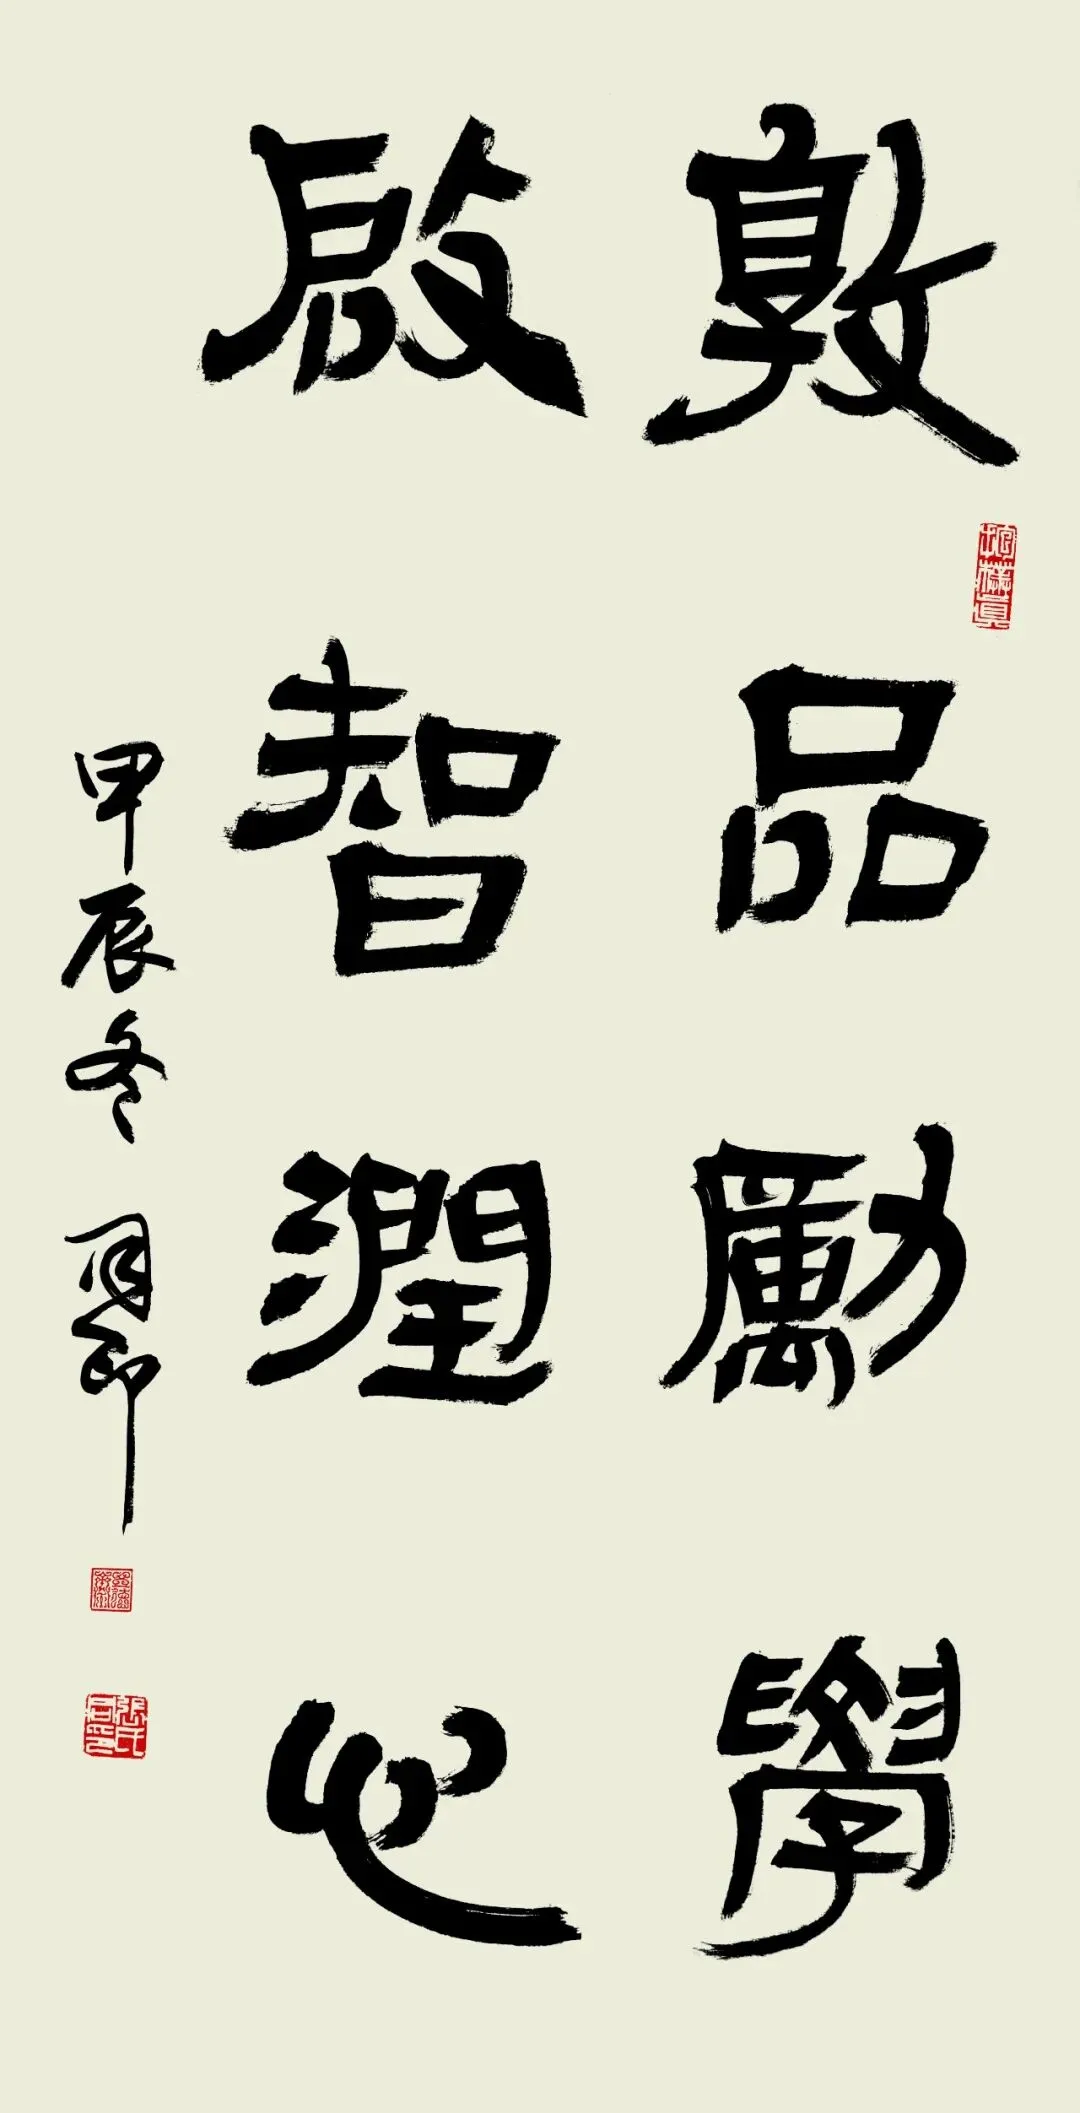 敦品勵學
啟智潤心
甲辰冬